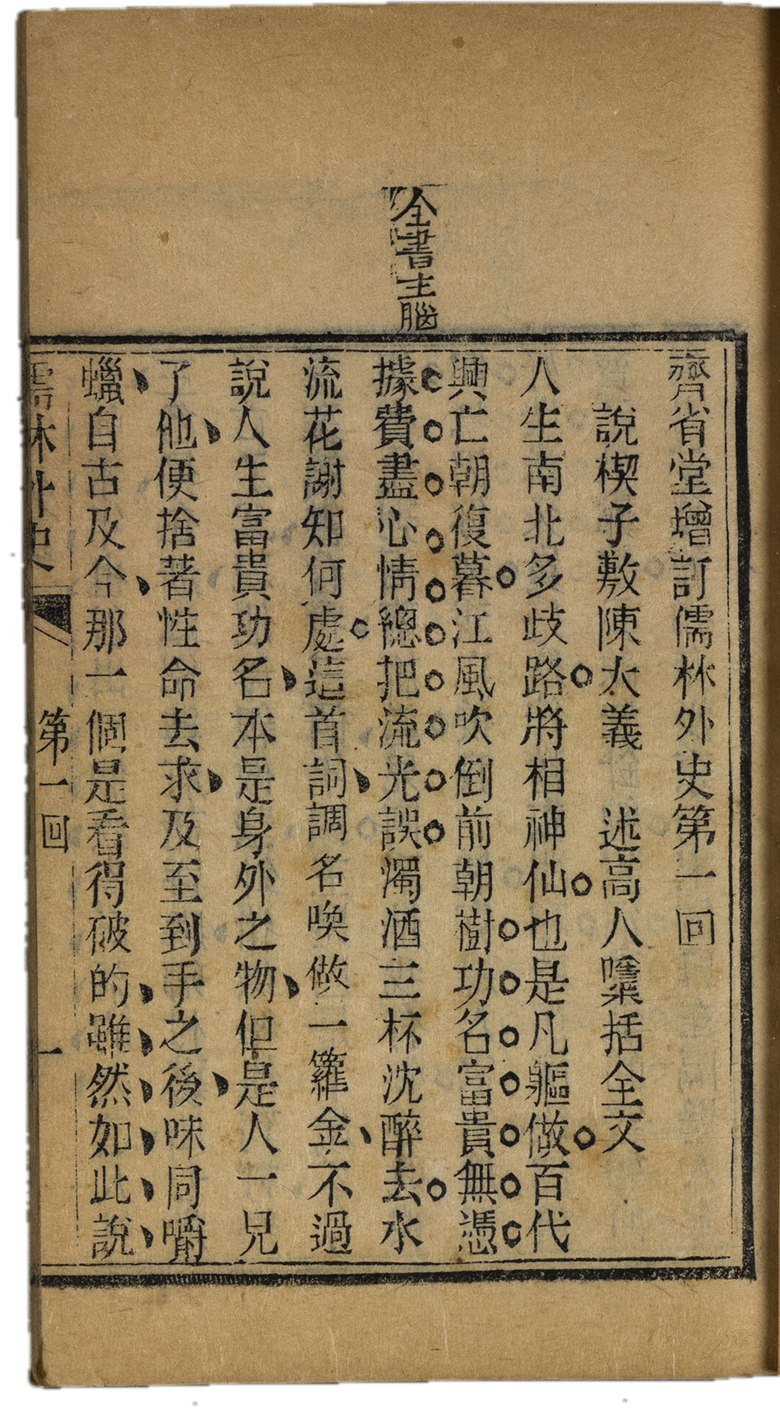 全書主腦
齊省堂增訂儒林外史第一回
說楔子敷陳大義　述高人櫽括全文
人生南北多歧路將相神仙也是凡軀做百代
興亡朝復暮江風吹倒前朝樹功名富貴無憑
據費盡心情總把流光誤濁酒三杯沈醉去水
流花謝知何處這首詞調名喚做一籮金不過
說人生富貴功名本是身外之物但是人一見
了他便捨著性命去求及至到手之後味同嚼
蠟自古及今那一個是看得破的雖然如此說
儒林外史　第一回　一